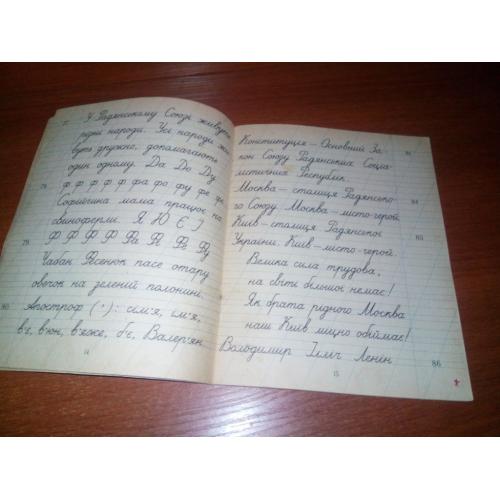 77 У Радянському Союзі живуть
різні народи. Усі народи жи-
вуть дружно, допомагають
один одному. Да До Ду
78 ф ф ф ф ф ф фа фо фу фе фі
Софійчина мама працює на
свинофермі. Я Ю Є Ї
79 Ф Ф Ф Ф Ф Фа Фі Фе Фу
Чабан Весенюк пасе отару
овечок на зеленій полонині.
80 Апостроф ('): сім'я, ім'я,
в'є, в'юн, в'яже, б'є, Валер'ян.
14
Конституція – Основний За-
кон Союзу Радянських Соціа-
лістичних Республік.
Москва – столиця Радянсько- 84
го Союзу. Москва – місто-герой.
Київ – столиця Радянської 85
України. Київ – місто-герой.
Велика сила трудова,
на світі більшої немає!
Як брата рідного Москва
наш Київ міцно обіймає!
Володимир Ілліч Ленін 86
15